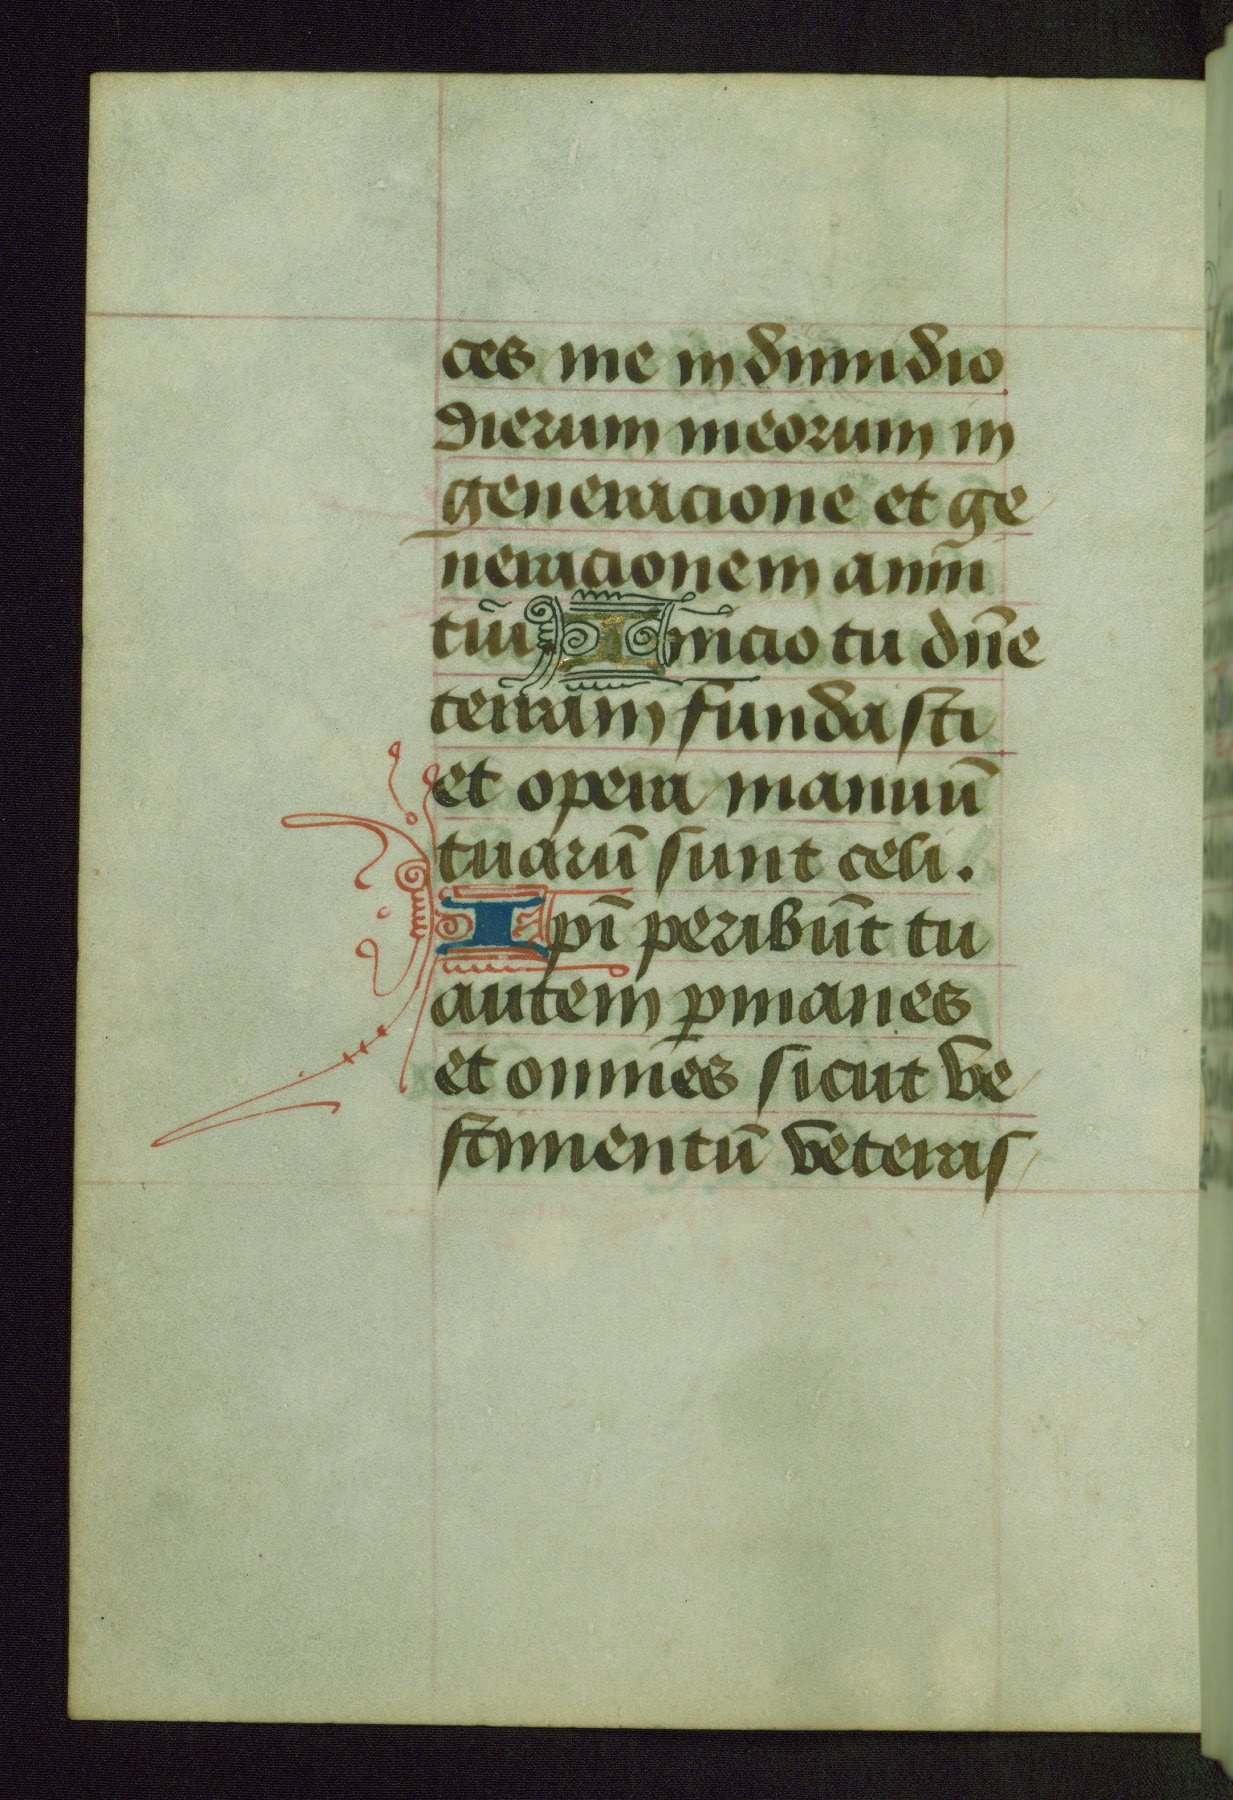 ces me in dimidio
dierum meorum in
generacione et ge
neracionem anni
tui Inicio tu dñe
terram fundasti
et opera manuū
tuarū sunt celi.
Ipī peribūt tu
autem ꝑmanes
et omnēs sicut ve
stimentū veteras